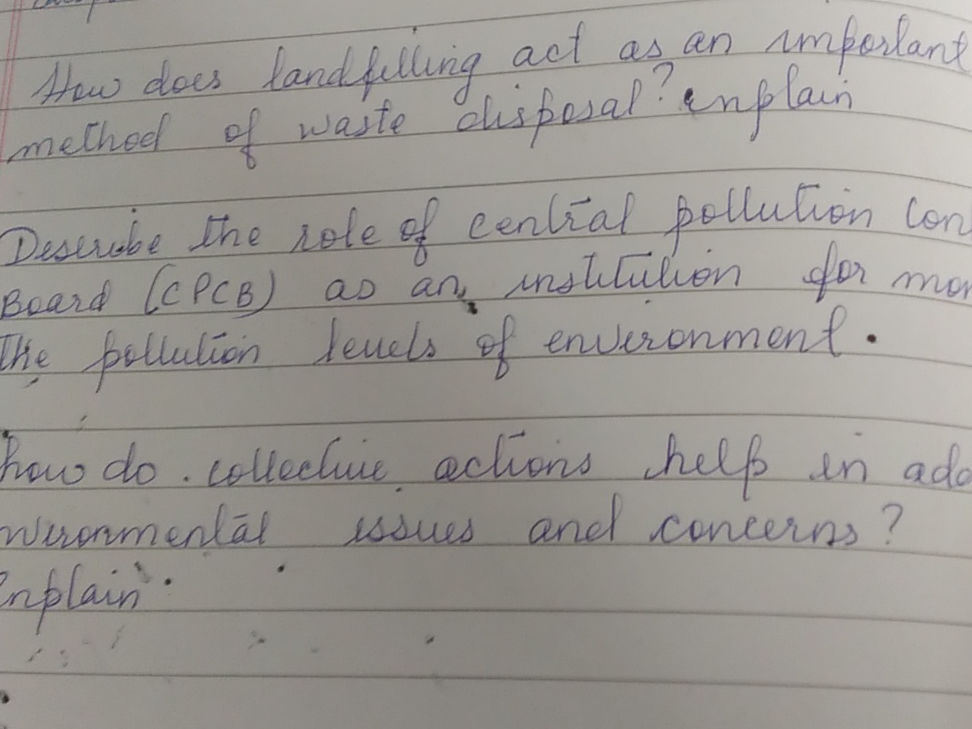 How does landfilling act as an important
method of waste disposal? enplain
Describe the role of central pollution Con
Board (CPCB) as an institution for mon
The pollution levels of environment.
how do collective actions help in add
nvironmental issues and concerns?
Enplain